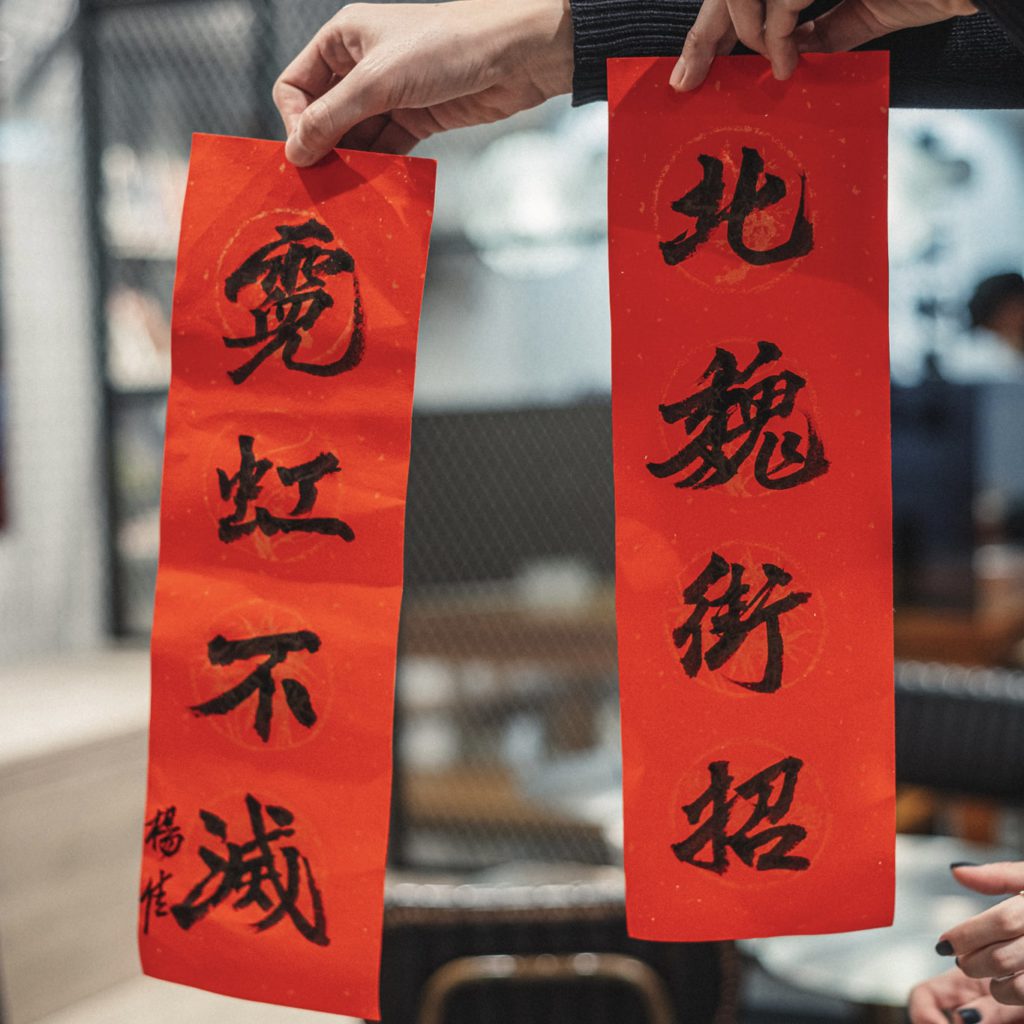 北魏街招
霓虹不滅
楊佳